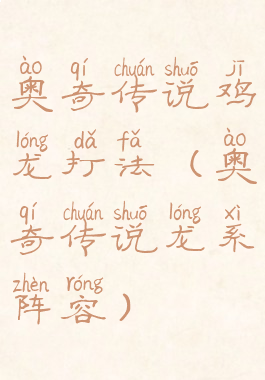 ào qí chuán shuō jī
奥奇传说鸡
lóng dǎ fǎ ào
龙打法（奥
qí chuán shuō lóng xì
奇传说龙系
zhèn róng
阵容）